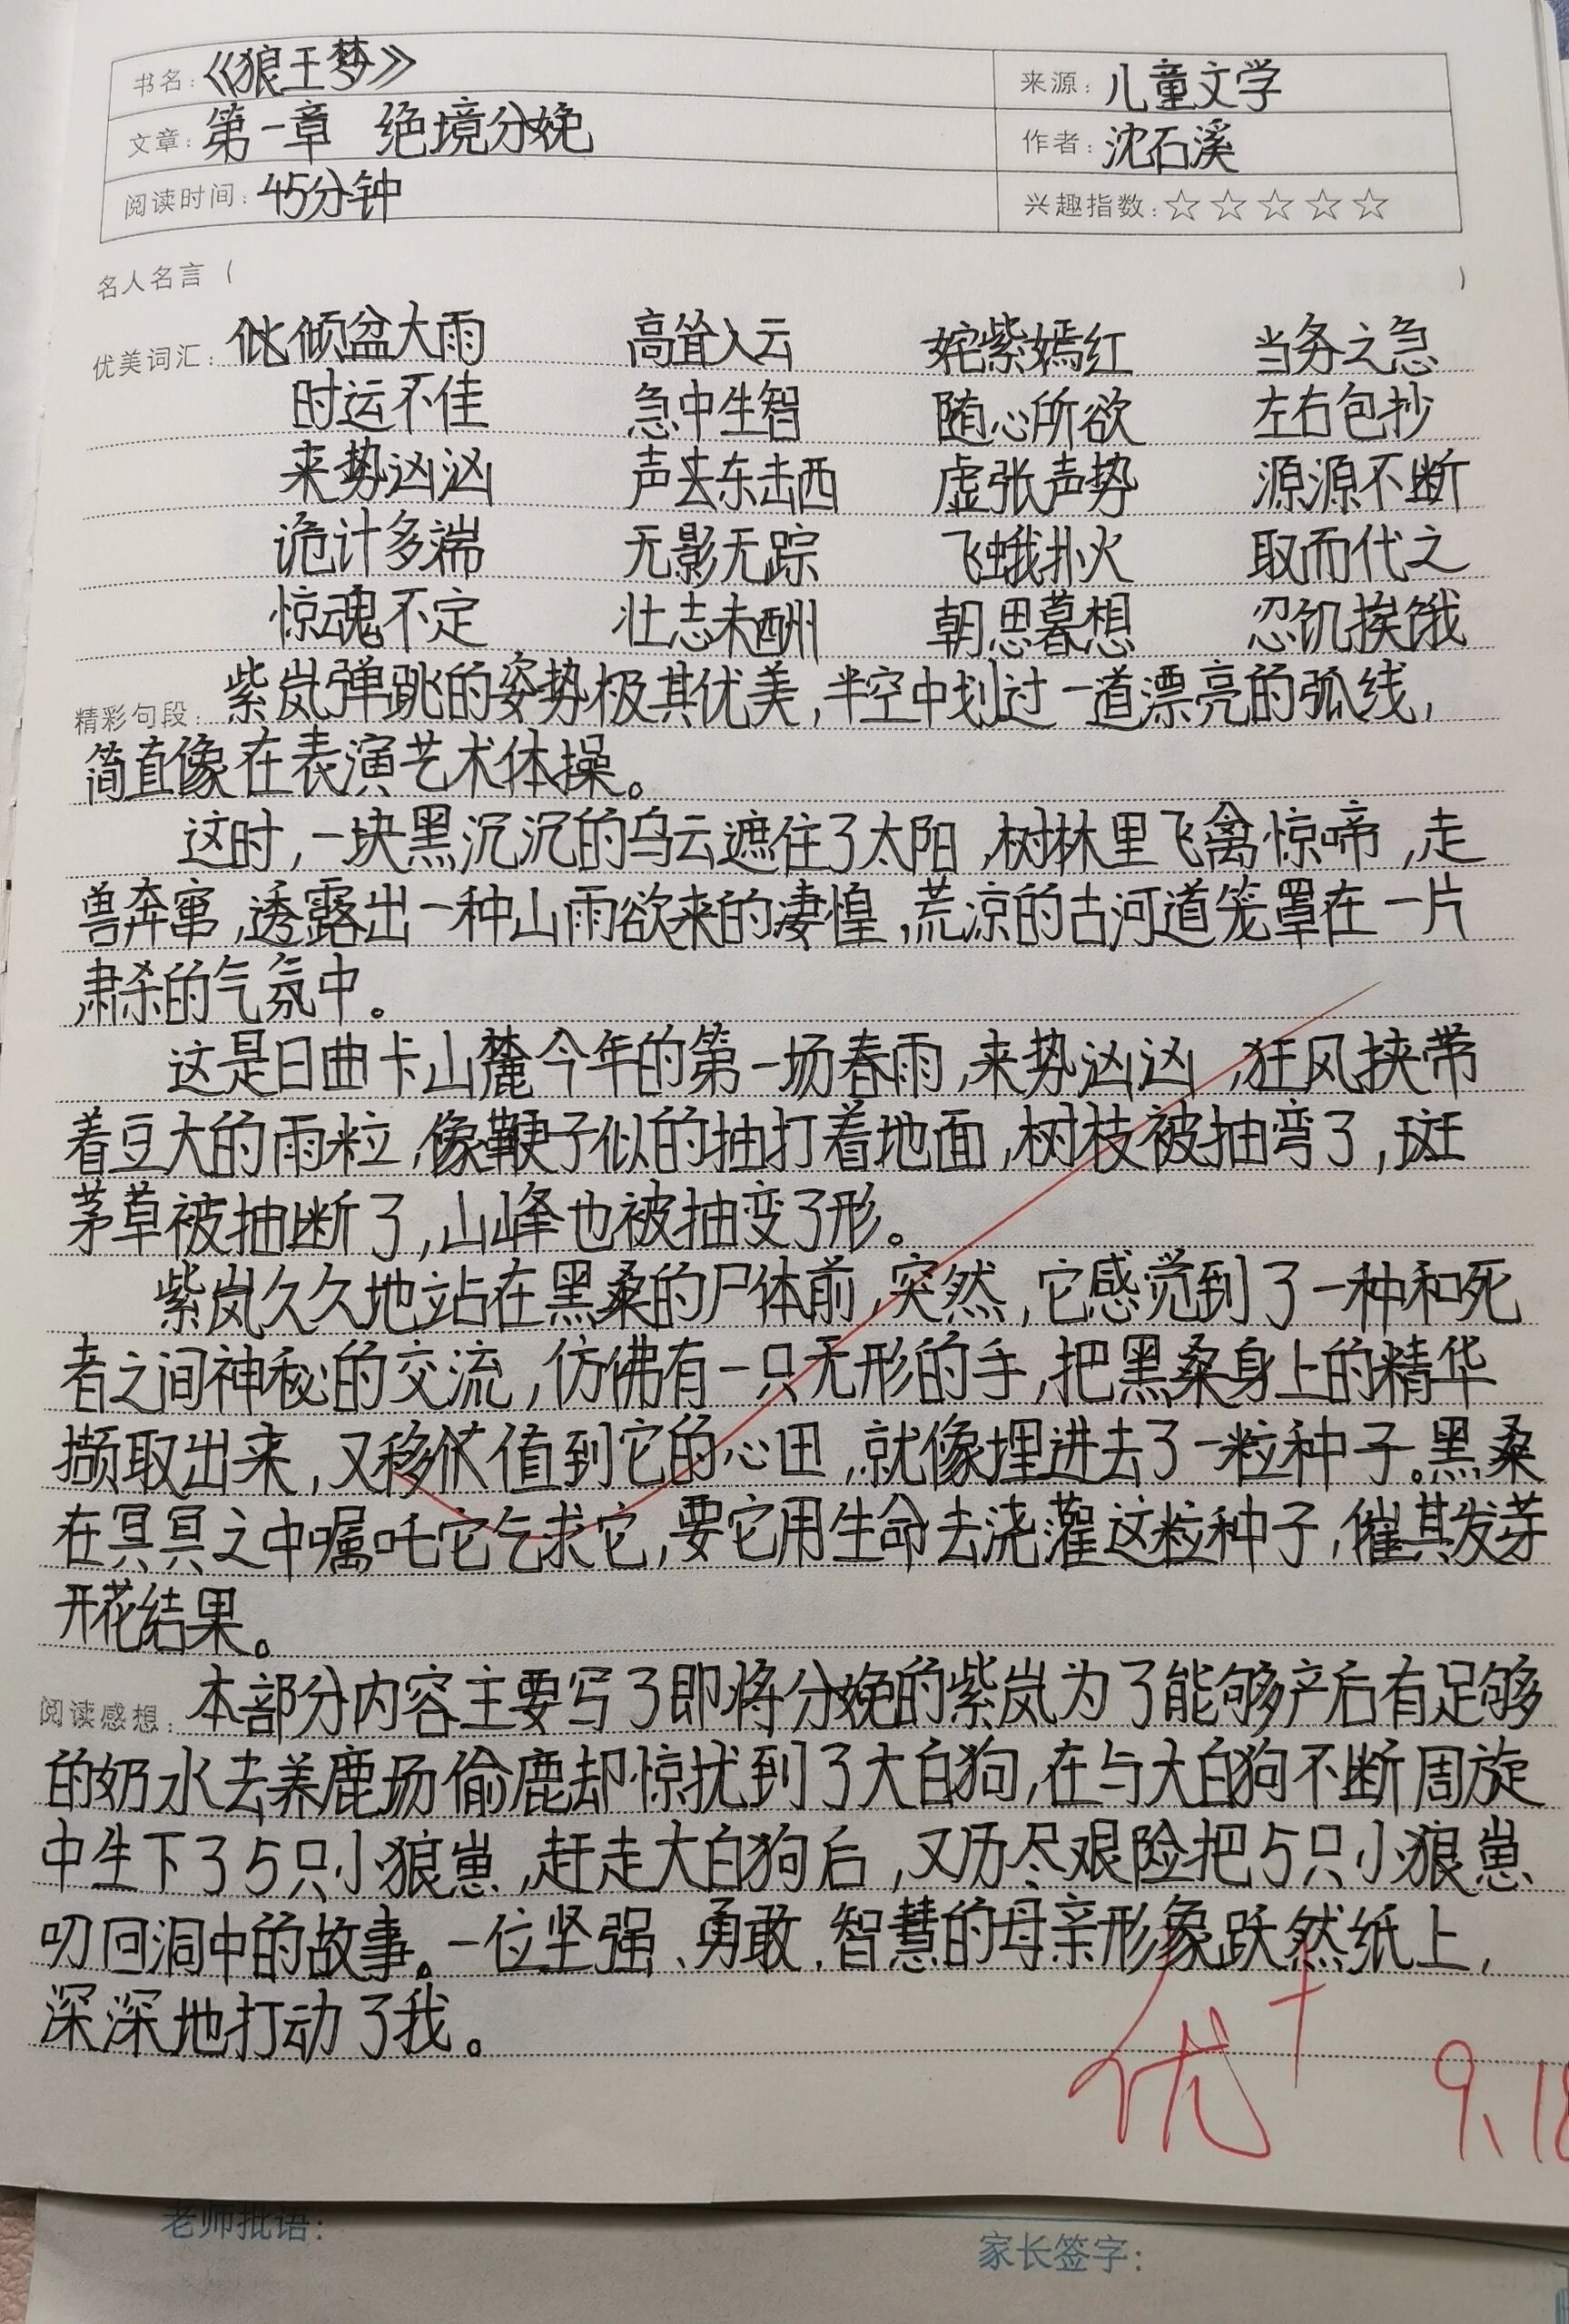 书名：《狼王梦》 来源：儿童文学
文章：第一章 绝境分娩 作者：沈石溪
阅读时间：45分钟 兴趣指数：☆☆☆☆☆
名人名言（ ）
优美词汇： 倾盆大雨 高耸入云 姹紫嫣红 当务之急
时运不佳 急中生智 随心所欲 左右包抄
来势汹汹 声去东击西 虚张声势 源源不断
诡计多端 无影无踪 飞蛾扑火 取而代之
惊魂不定 壮志未酬 朝思暮想 忍饥挨饿
精彩句段： 紫岚弹跳的姿势极其优美，半空中划过一道漂亮的弧线，
简直像在表演艺术体操。
这时，一块黑沉沉的乌云遮住了太阳，树林里飞禽惊啼，走
兽奔窜，透露出一种山雨欲来的凄惶，荒凉的古河道笼罩在一片
肃杀的气氛中。
这是日曲卡山麓今年的第一场春雨，来势汹汹，狂风挟带
着豆大的雨粒，像鞭子似的抽打着地面，树枝被抽弯了，斑
茅草被抽断了，山峰也被抽变了形。
紫岚久久地站在黑桑的尸体前，突然，它感觉到了一种和死
者之间神秘的交流，仿佛有一只无形的手，把黑桑身上的精华
撷取出来，又移值到它的心田，就像埋进去了一粒种子。黑桑
在冥冥之中嘱吒它乞求它，要它用生命去浇灌这粒种子，催其发芽
开花结果。
阅读感想： 本部分内容主要写了即将分娩的紫岚为了能够产后有足够
的奶水去养鹿场偷鹿却惊扰到了大白狗，在与大白狗不断周旋
中生下了5只小狼崽，赶走大白狗后，又历尽艰险把5只小狼崽
叼回洞中的故事。一位坚强、勇敢、智慧的母亲形象跃然纸上，
深深地打动了我。
优+ 9.18
老师批语：
家长签字：